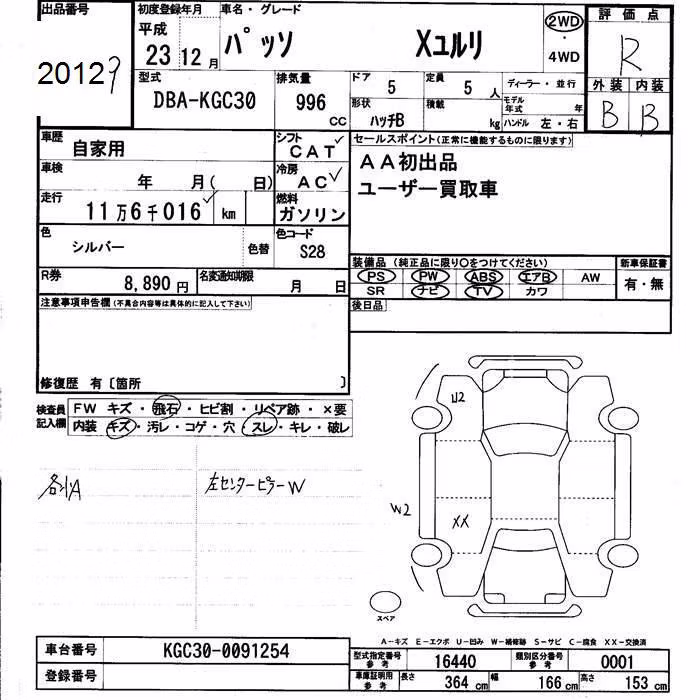 出品番号 初度登録年月 車名・グレード 2WD 評価点
平成 23 12月 パッソ Xユルリ ・ 4WD R
20127
型式 排気量 ドア 定員 ディーラー・並行 外装 内装
DBA-KGC30 996 CC 5 5人 モデル年式 年 B B
形状 ハッチB 積載 kg ハンドル 左・右
車歴 自家用 シフト CAT セールスポイント(正常に機能するものに限ります)
車検 年 月( 日) 冷房 AC AA初出品
ユーザー買取車
走行 11万6千016 km 燃料 ガソリン
色 シルバー 色替 色コード S28
装備品(純正品に限り○をつけてください) 新車保証書
R券 8,890円 名変通知期限 月 日 PS PW ABS エアB AW 有・無
SR ナビ TV カワ
注意事項申告欄(不具合内容等は具体的に記入して下さい) 後日品
修復歴 有〔箇所 〕
検査員 FW キズ・飛石・ヒビ割・リペア跡・×要
記入欄 内装 キズ・汚レ・コゲ・穴・スレ・キレ・破レ
U2
各小A 左センターピラーW
W2
XX
スペア
A-キズ E-エクボ U-凹み W-補修跡 S-サビ C-腐食 XX-交換済
車台番号 KGC30-0091254
登録番号
型式指定番号 参考 16440 類別区分番号 参考 0001
車庫証明用 参考 長さ 364cm 幅 166cm 高さ 153cm